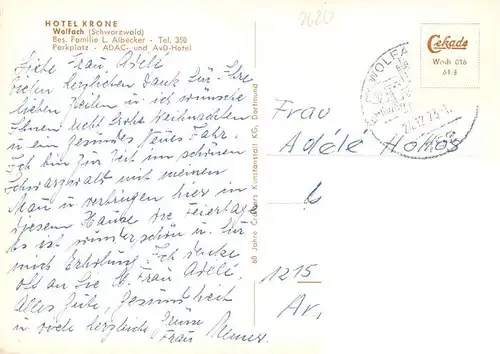 HOTEL KRONE
Wolfach (Schwarzwald)
Bes. Familie L. Albecker - Tel. 350
Parkplatz - ADAC- und AvD-Hotel
Liebe Frau Adélé
vielen herzlichen Dank für Ihre
lieben Zeilen u. ich wünsche
Ihnen recht frohe Weihnachten
u. ein gesundes Neues Jahr.
Ich bin zur Zeit im schönen
Schwarzwald mit meinem
Mann u. verbringen hier in
diesem Hause die Feiertage
Es ist wunderschön u. für
mich Erholung. Ich denke
oft an Sie lb. Frau Adélé.
Alles Gute, Gesundheit
u. viele herzliche Grüsse
Frau
60 Jahre Cramers Kunstanstalt KG, Dortmund
2620
WOLFA
24.12.75
Cekade
Wo-ih 016
61 3
Frau
Adéle
1215